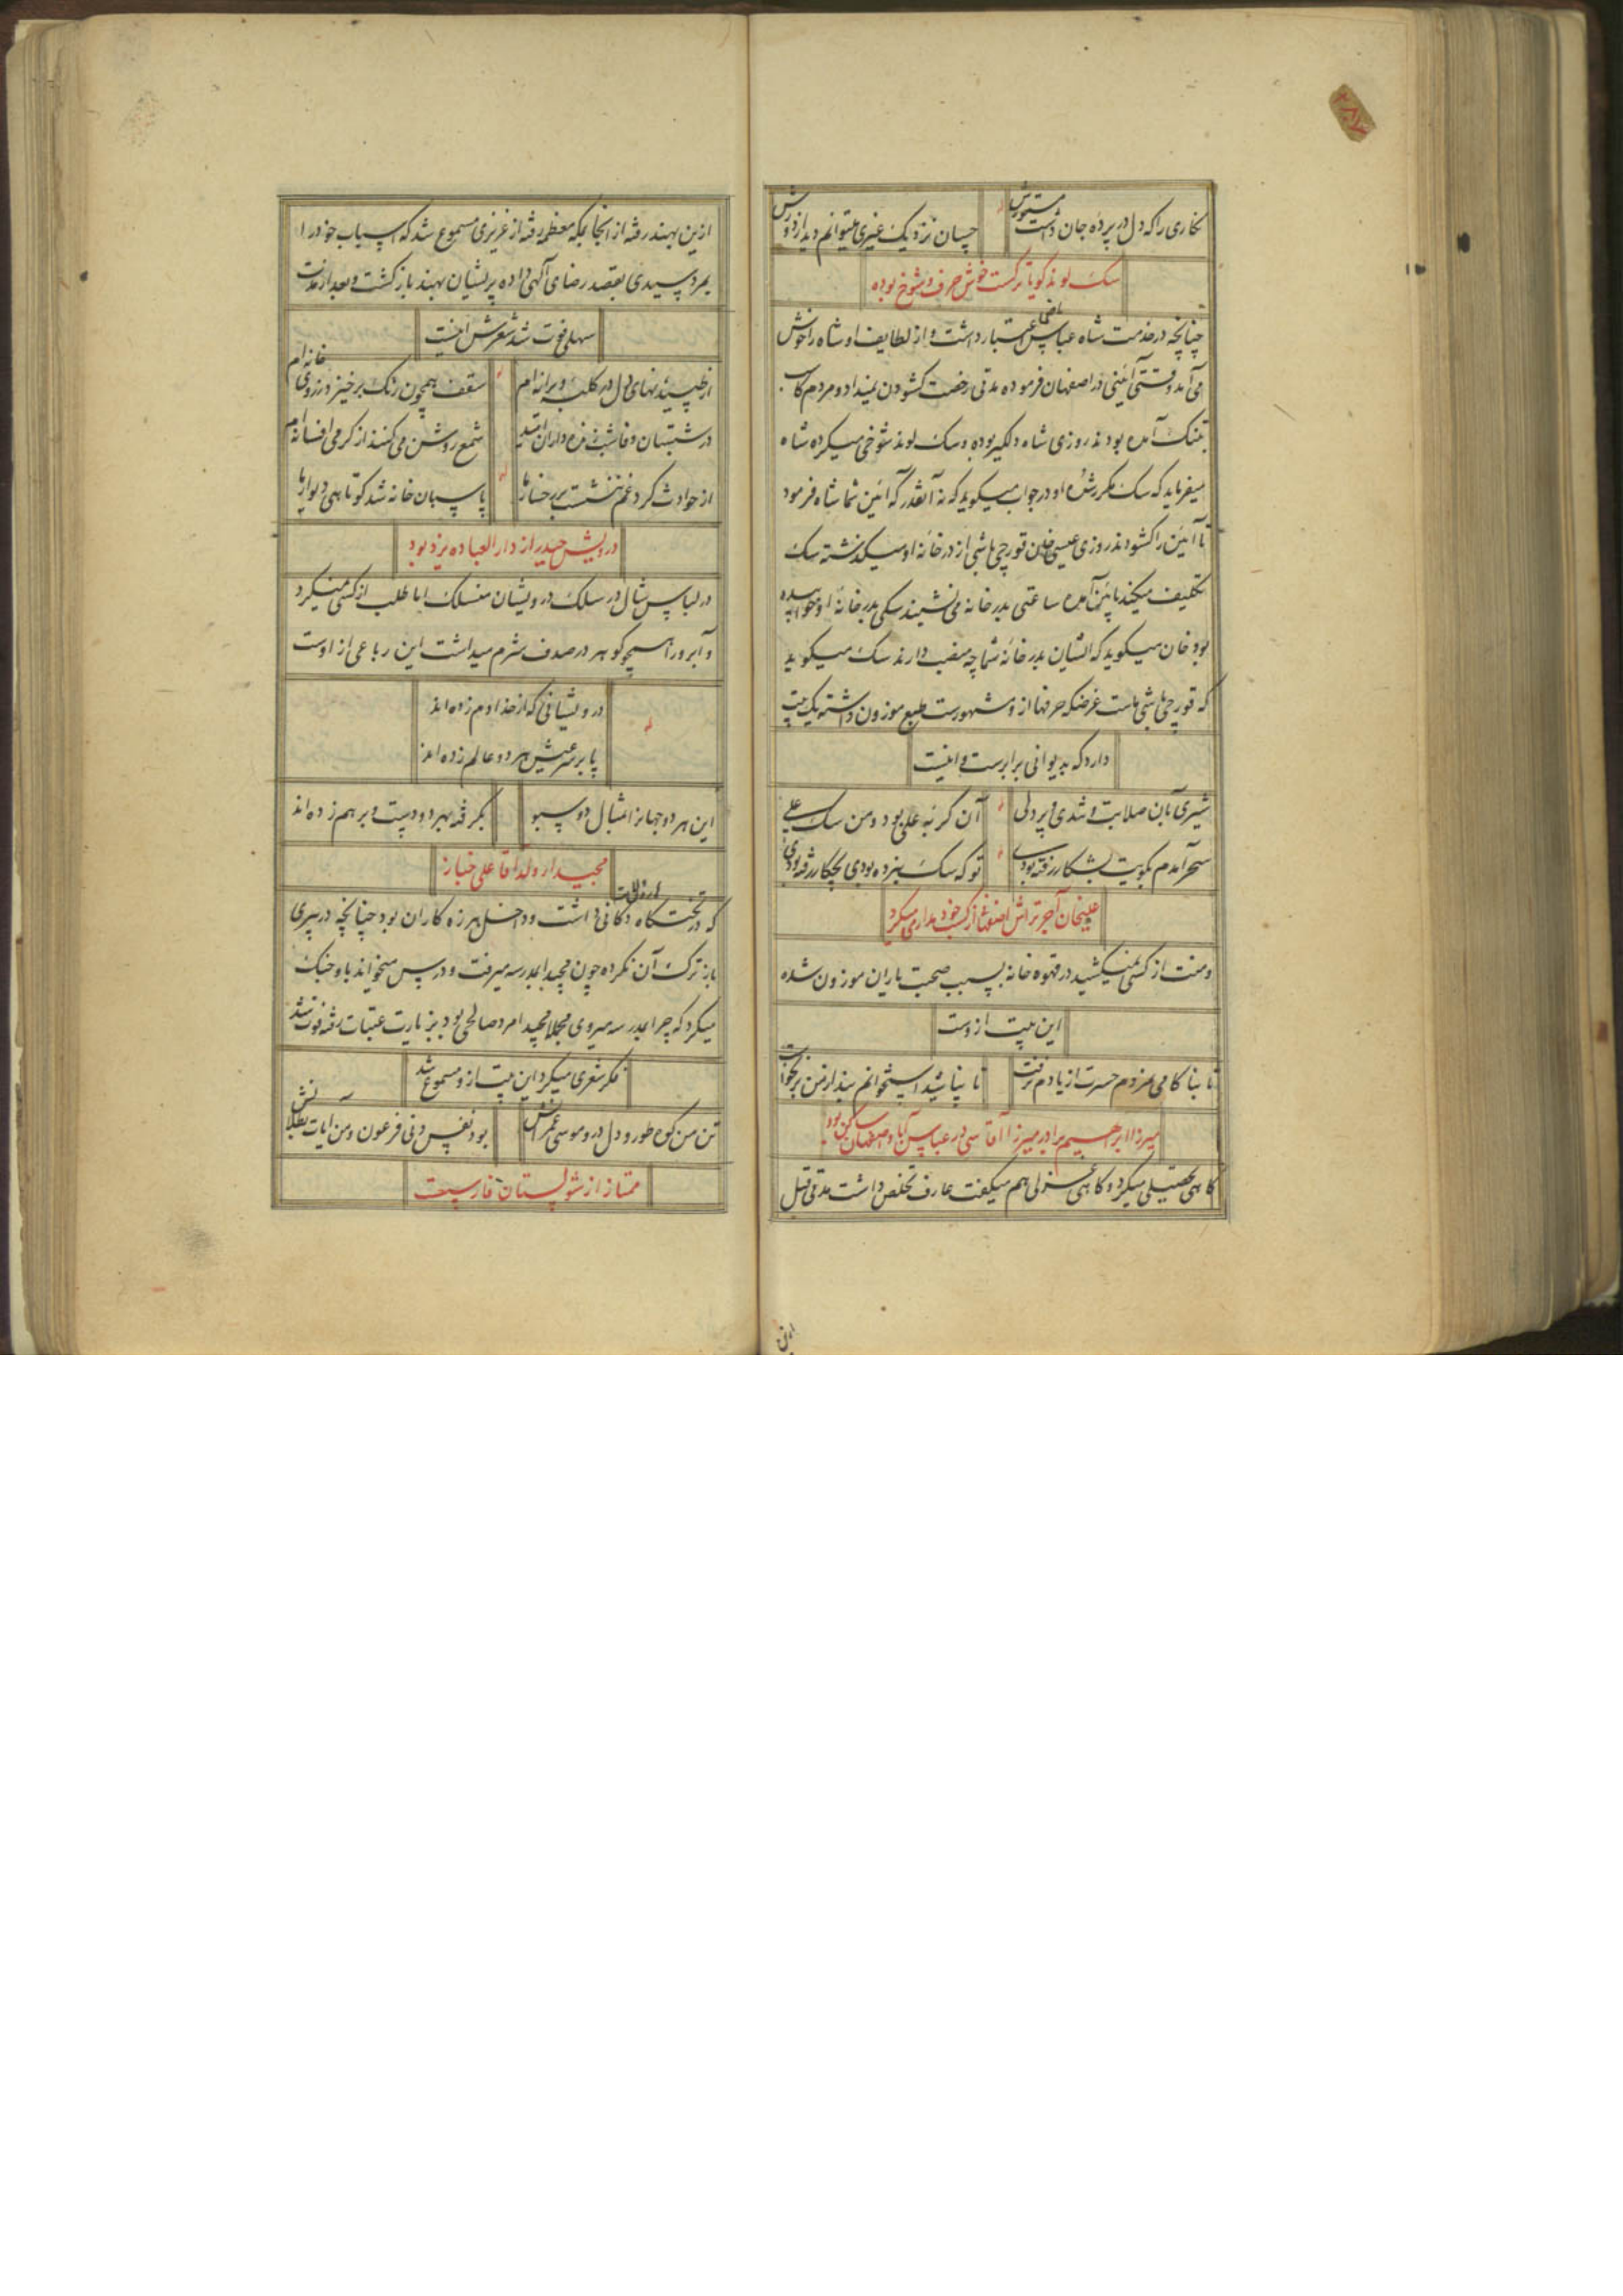 ۲۸۷
نگاری را که دل در پرده جان داشت مستورش
چسان نزدیک غیری میتوانم دید از دورش
سک لوند گویا ترکست خوش حرف و شوخ بوده
چنانچه در خدمت شاه عباس ماضی اعتبار داشت و از لطایف او شاه را خوش
می آمد وقتی آئینی در اصفهان فرموده مدتی رخصت کشودن نمیداد و مردم کاسب
بتنک آمده بودند روزی شاه دلگیر بوده و سک لوند شوخی میکرده شاه
میفرماید که سک مکرر شده او در جواب میکوید که نه آنقدر که آئین شما شاه فرمود
تا آئین را کشودند روزی عیسی خان قورچی باشی از در خانه او میکذشته سک
تکلیف میکند پائین آمده ساعتی بدر خانه می نشیند سکی بدر خانه او خوابیده
بود خان میکوید که ایشان بدر خانه شما چه منصب دارند سک میکوید
که قورچی باشی ماست غرضکه حرفها از و مشهورست طبع موزون داشته یک بیت
دارد که بدیوانی برابرست و اینست
شیری بآن صلابت و تندی و پردلی
آن کربه علی بود و من سک علی
سحر آمدم بکویت بشکار رفته بودی
تو که سک نبرده بودی بچکار رفته بودی
علیخان آجر تراش اصفهانی از کسب خود مدار میکرد
و منت از کسی نمیکشید در قهوه خانه بسبب صحبت یاران موزون شده
این بیت ازوست
تا بناکامی مردم حسرت از یادم نرفت
تا بپاشید استخوانم بند از من برنخواست
میرزا ابراهیم برادر میرزا آقاسی در عباس آباد اصفهان ساکن بود
کاهی تحصیلی میکرد و کاهی غزلی هم میکفت عارف تخلص داشت مدتی قبل
ازین بهند رفته از آنجا بمکه معظمه رفته از عزیزی مسموع شد که اسباب خود را
بمرد سیدی بقصد رضای آلهی داده پریشان بهند بازکشت و بعد از مدت
سهلی فوت شد شعرش اینست
از طپیدنهای دل در کلبه ویرانه ام
سقف همچون رنک برخیزد ز روی خانه ام
در شبستان وفا شب زنده داران امید
شمع روشن می کنند از کرمی افسانه ام
از حوادث کرد غم ننشست بر رخسار ما
پاسبان خانه شد کوتاهی دیوار ما
درویش حیدر از دار العباده یزد بود
در لباس شال در سلک درویشان منسلک اما طلب از کسی نمیکرد
و آبرو را همچو کوهر در صدف شرم میداشت این رباعی از اوست
درویشانی که از خدا دم زده اند
پا بر سر عیش هر دو عالم زده اند
این هر دو جهان را مثال دو سبو
بکرفته بهر دو دست و بر هم زده اند
مجیدا ولد آقا علی خباز
که در تختکاه دکانی داشت و داخل هرزه کاران بود چنانچه در پیری
باز ترک آن نکرده چون مجیدا بمدرسه میرفت و درس میخواند با و جنک
میکرد که چرا بمدرسه میروی مجملا مجیدا مرد صالحی بود بزیارت عتبات رفته فوت شد
فکر شعری میکرد این بیت از و مسموع شد
تن من کوه طور و دل درو موسی عمرانش
بود نفس دنی فرعون و من آیات بطلانش
ممتاز از شولستان فارسست